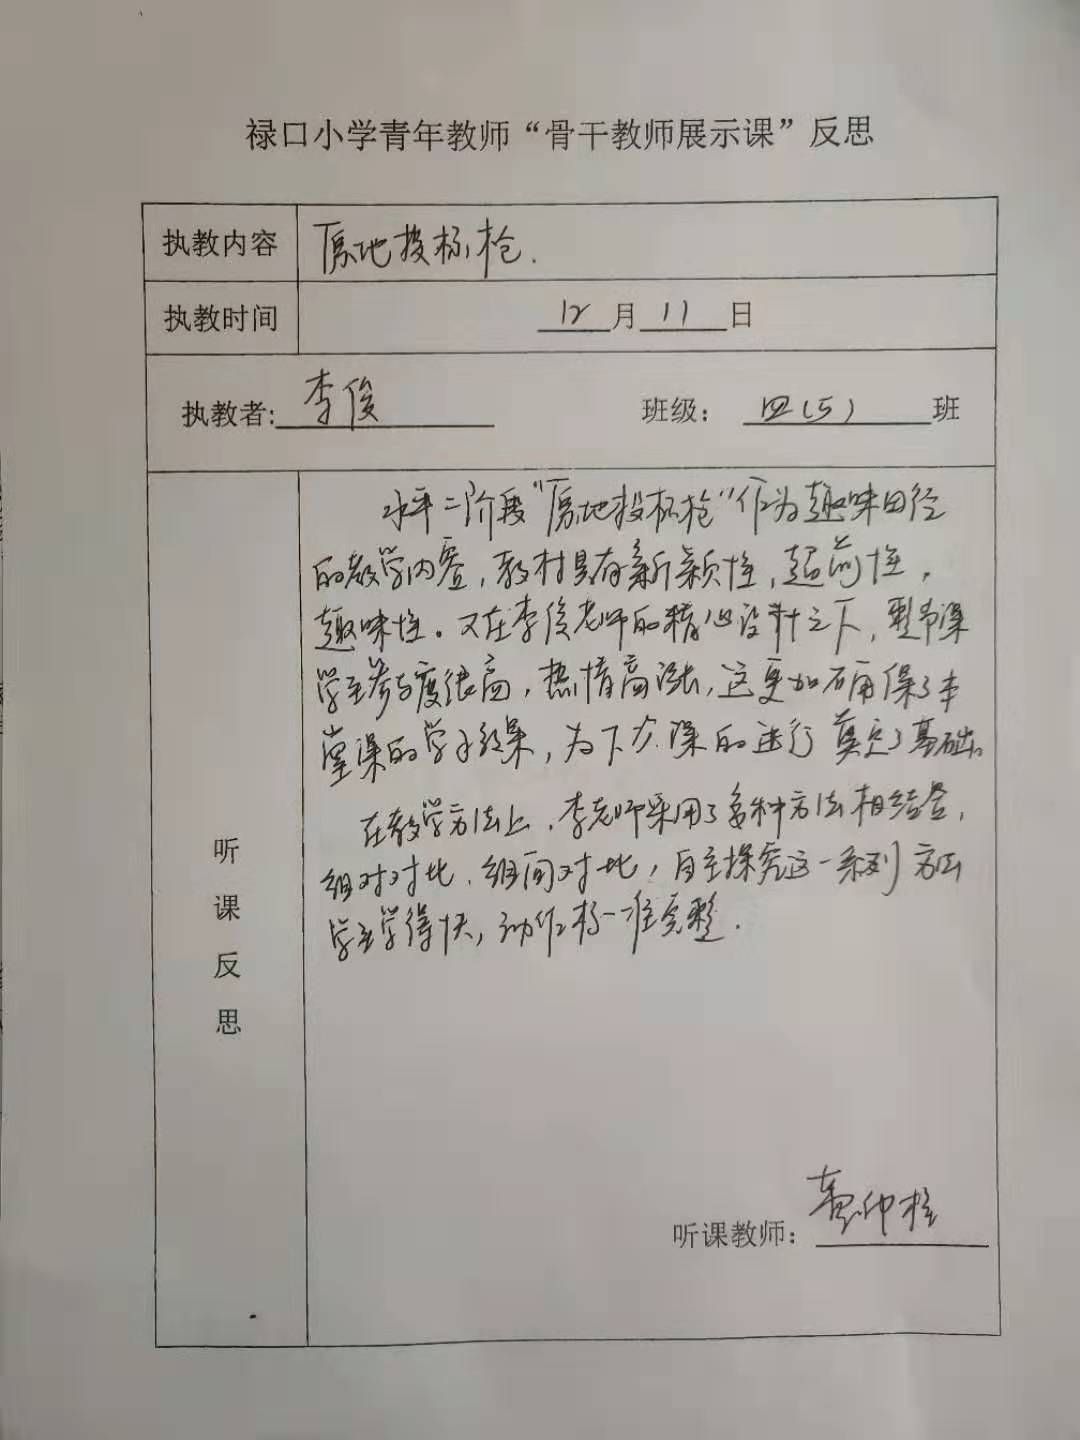 禄口小学青年教师“骨干教师展示课”反思
执教内容 原地投标枪.
执教时间 12月11日
执教者:李俊 班级：四(5)班
水平二阶段“原地投标枪”作为趣味田径
的教学内容，教材具有新颖性，超前性，
趣味性。又在李俊老师的精心设计之下，整节课
学生参与度很高，热情高涨，这更加确保了本
堂课的学习效果，为下次课的进行奠定了基础。
在教学方法上，李老师采用了多种方法相结合，
组对对比、组间对比，自主探究这一系列方法
学生学得快，动作标准完整.
听课反思
听课教师：仲桂